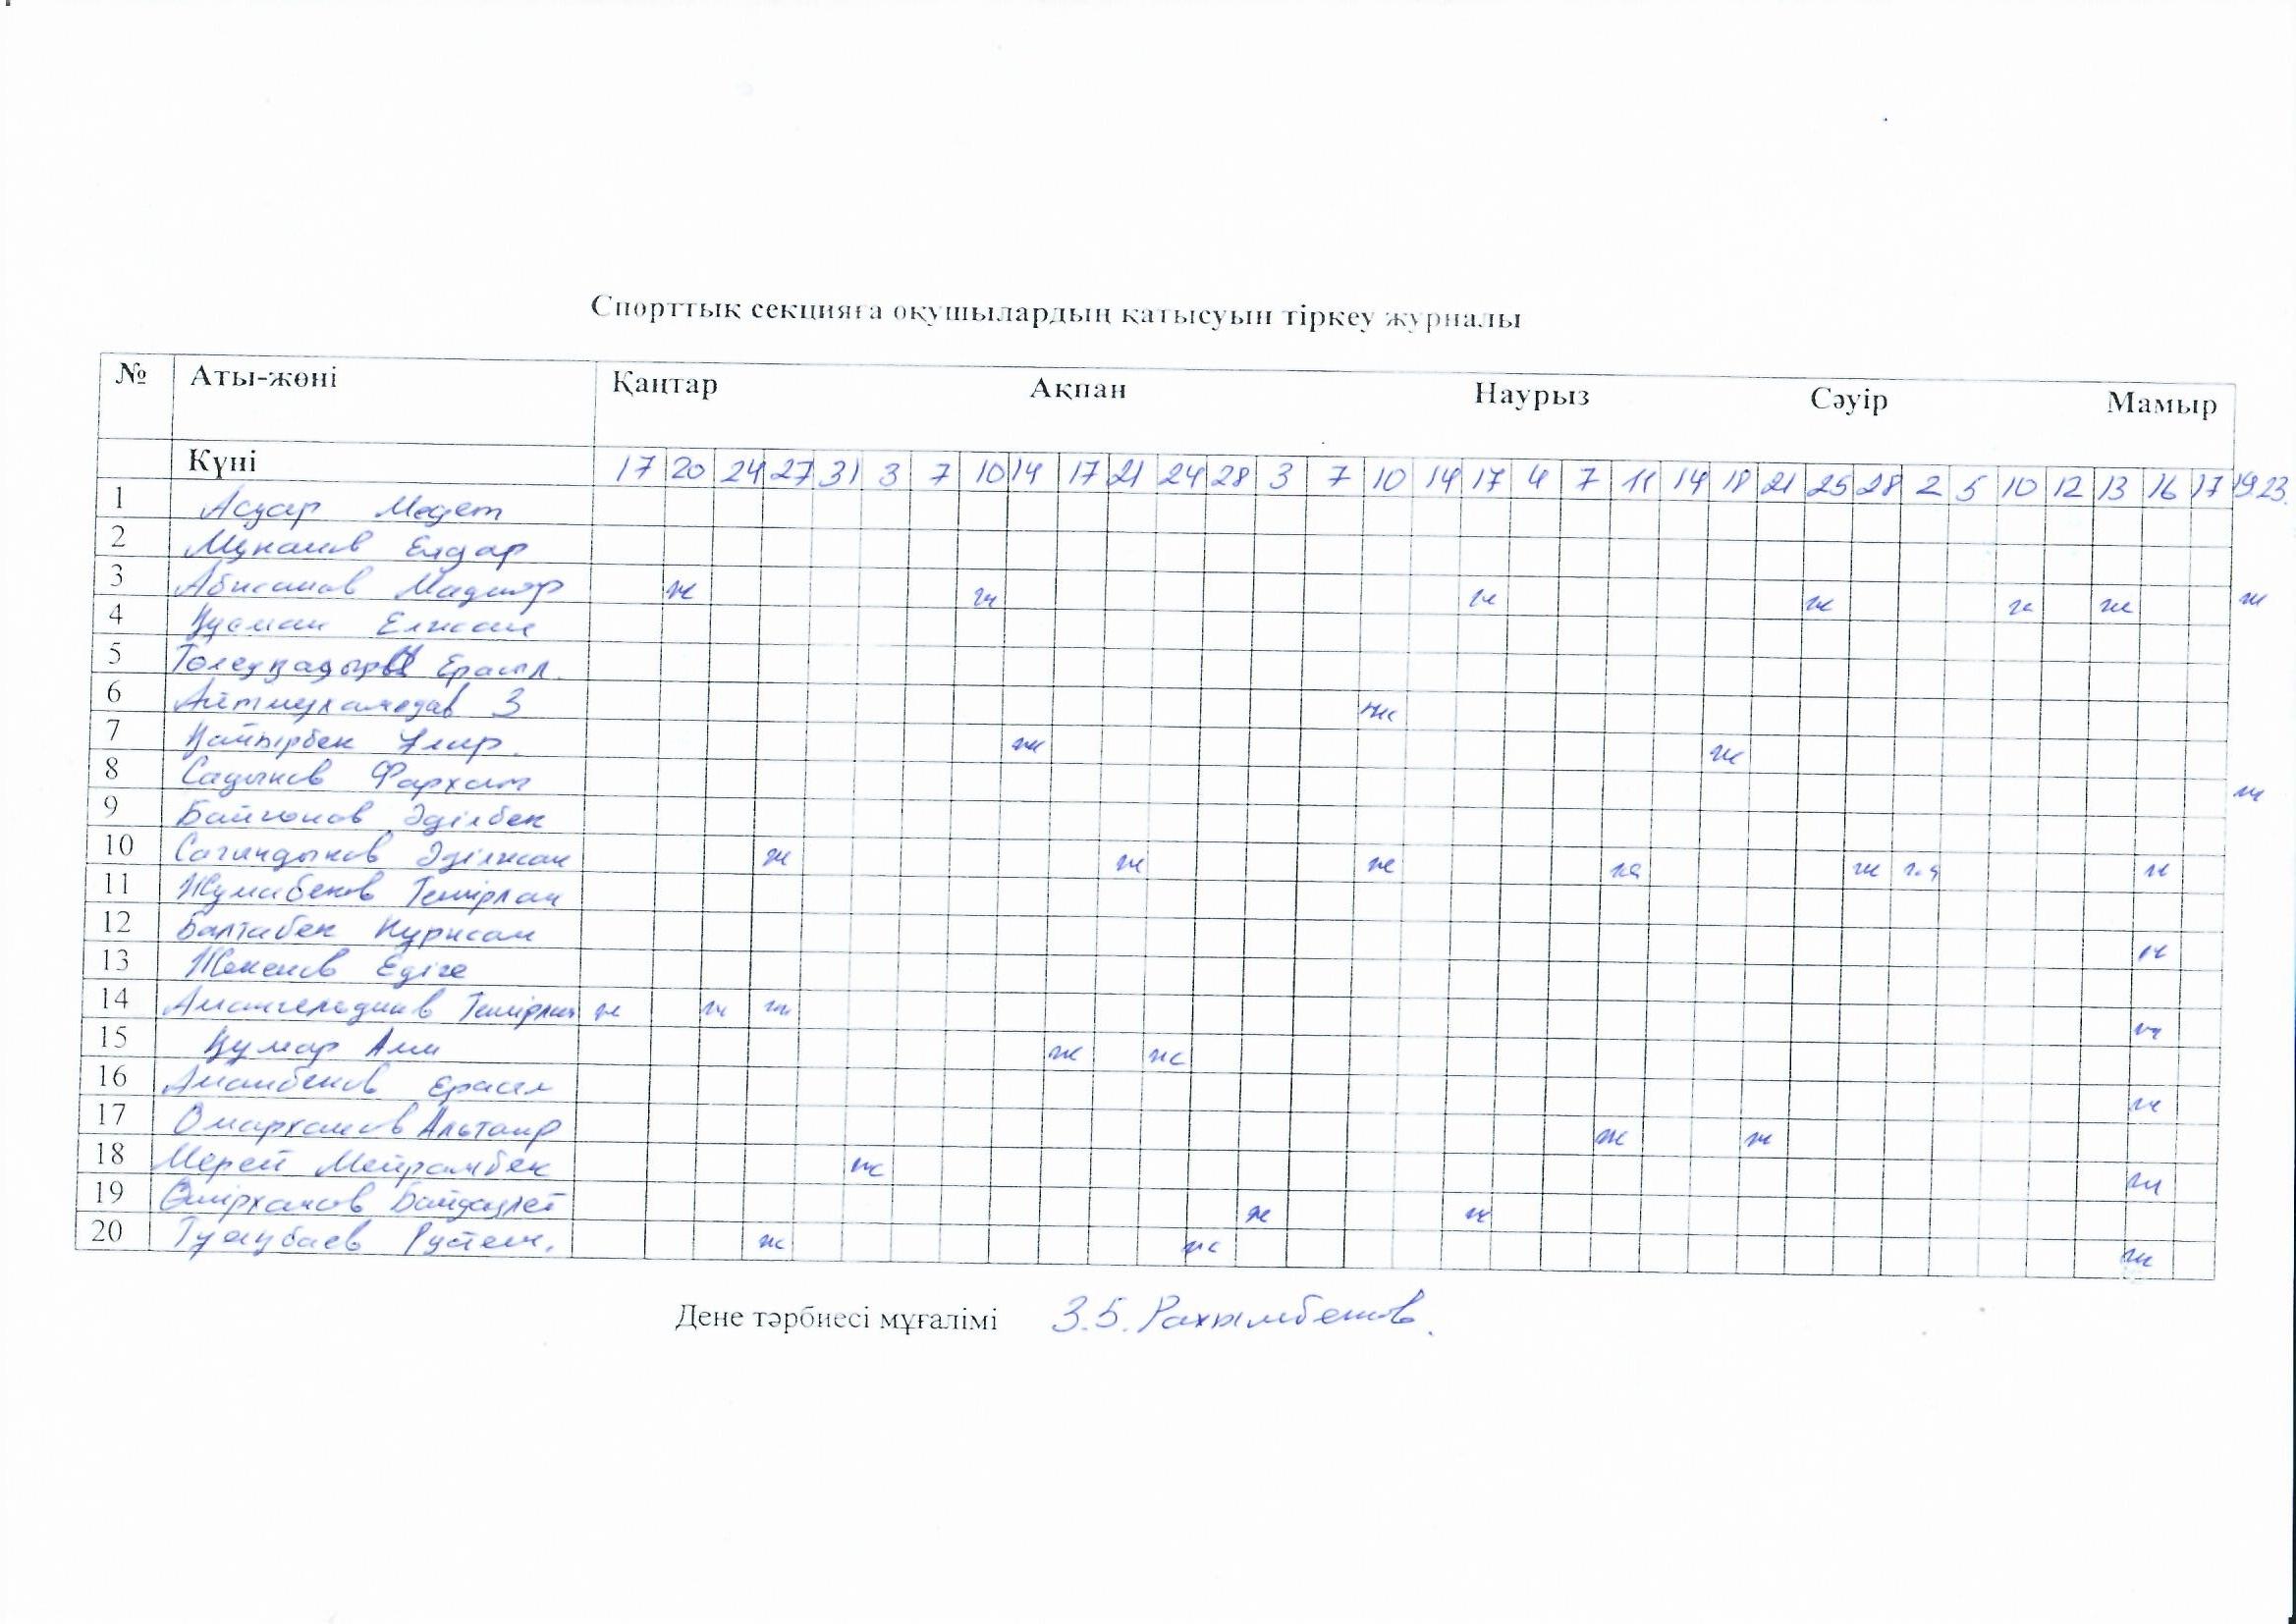 Спорттық секцияға оқушылардың қатысуын тіркеу журналы
№ Аты-жөні Қаңтар Ақпан Наурыз Сәуір Мамыр
Күні 17 20 24 27 31 3 7 10 14 17 21 24 28 3 7 10 14 17 4 7 11 14 18 21 25 28 2 5 10 12 13 16 17 19 23
1 Асқар Медет
2 Мұқанов Елдар
3 Абисанов Мадияр ж ж ж ж ж ж ж
4 Құсман Елжан
5 Төлеуқадыров Ерасыл.
6 Айтмухамедов З ж
7 Қайырбек ж ж
8 Садыков Фархат ж
9 Әділбек
10 Сагындыков Әділжан ж ж ж ж ж ж ж
11 Жумабеков Темірлан
12 Балтабек Нұржан ж
13 Жөкенов Едіге
14 Амангельдинов Темірлан ж ж ж ж
15 Құмар Али ж ж
16 Аманбеков Ерасыл ж
17 Омарханов Альтаир ж ж
18 Мерей Мейрамбек ж ж
19 Өмірханов Байдәулет ж ж
20 Рустем. ж ж ж
Дене тәрбиесі мұғалімі З.Б. Рахымбеков.